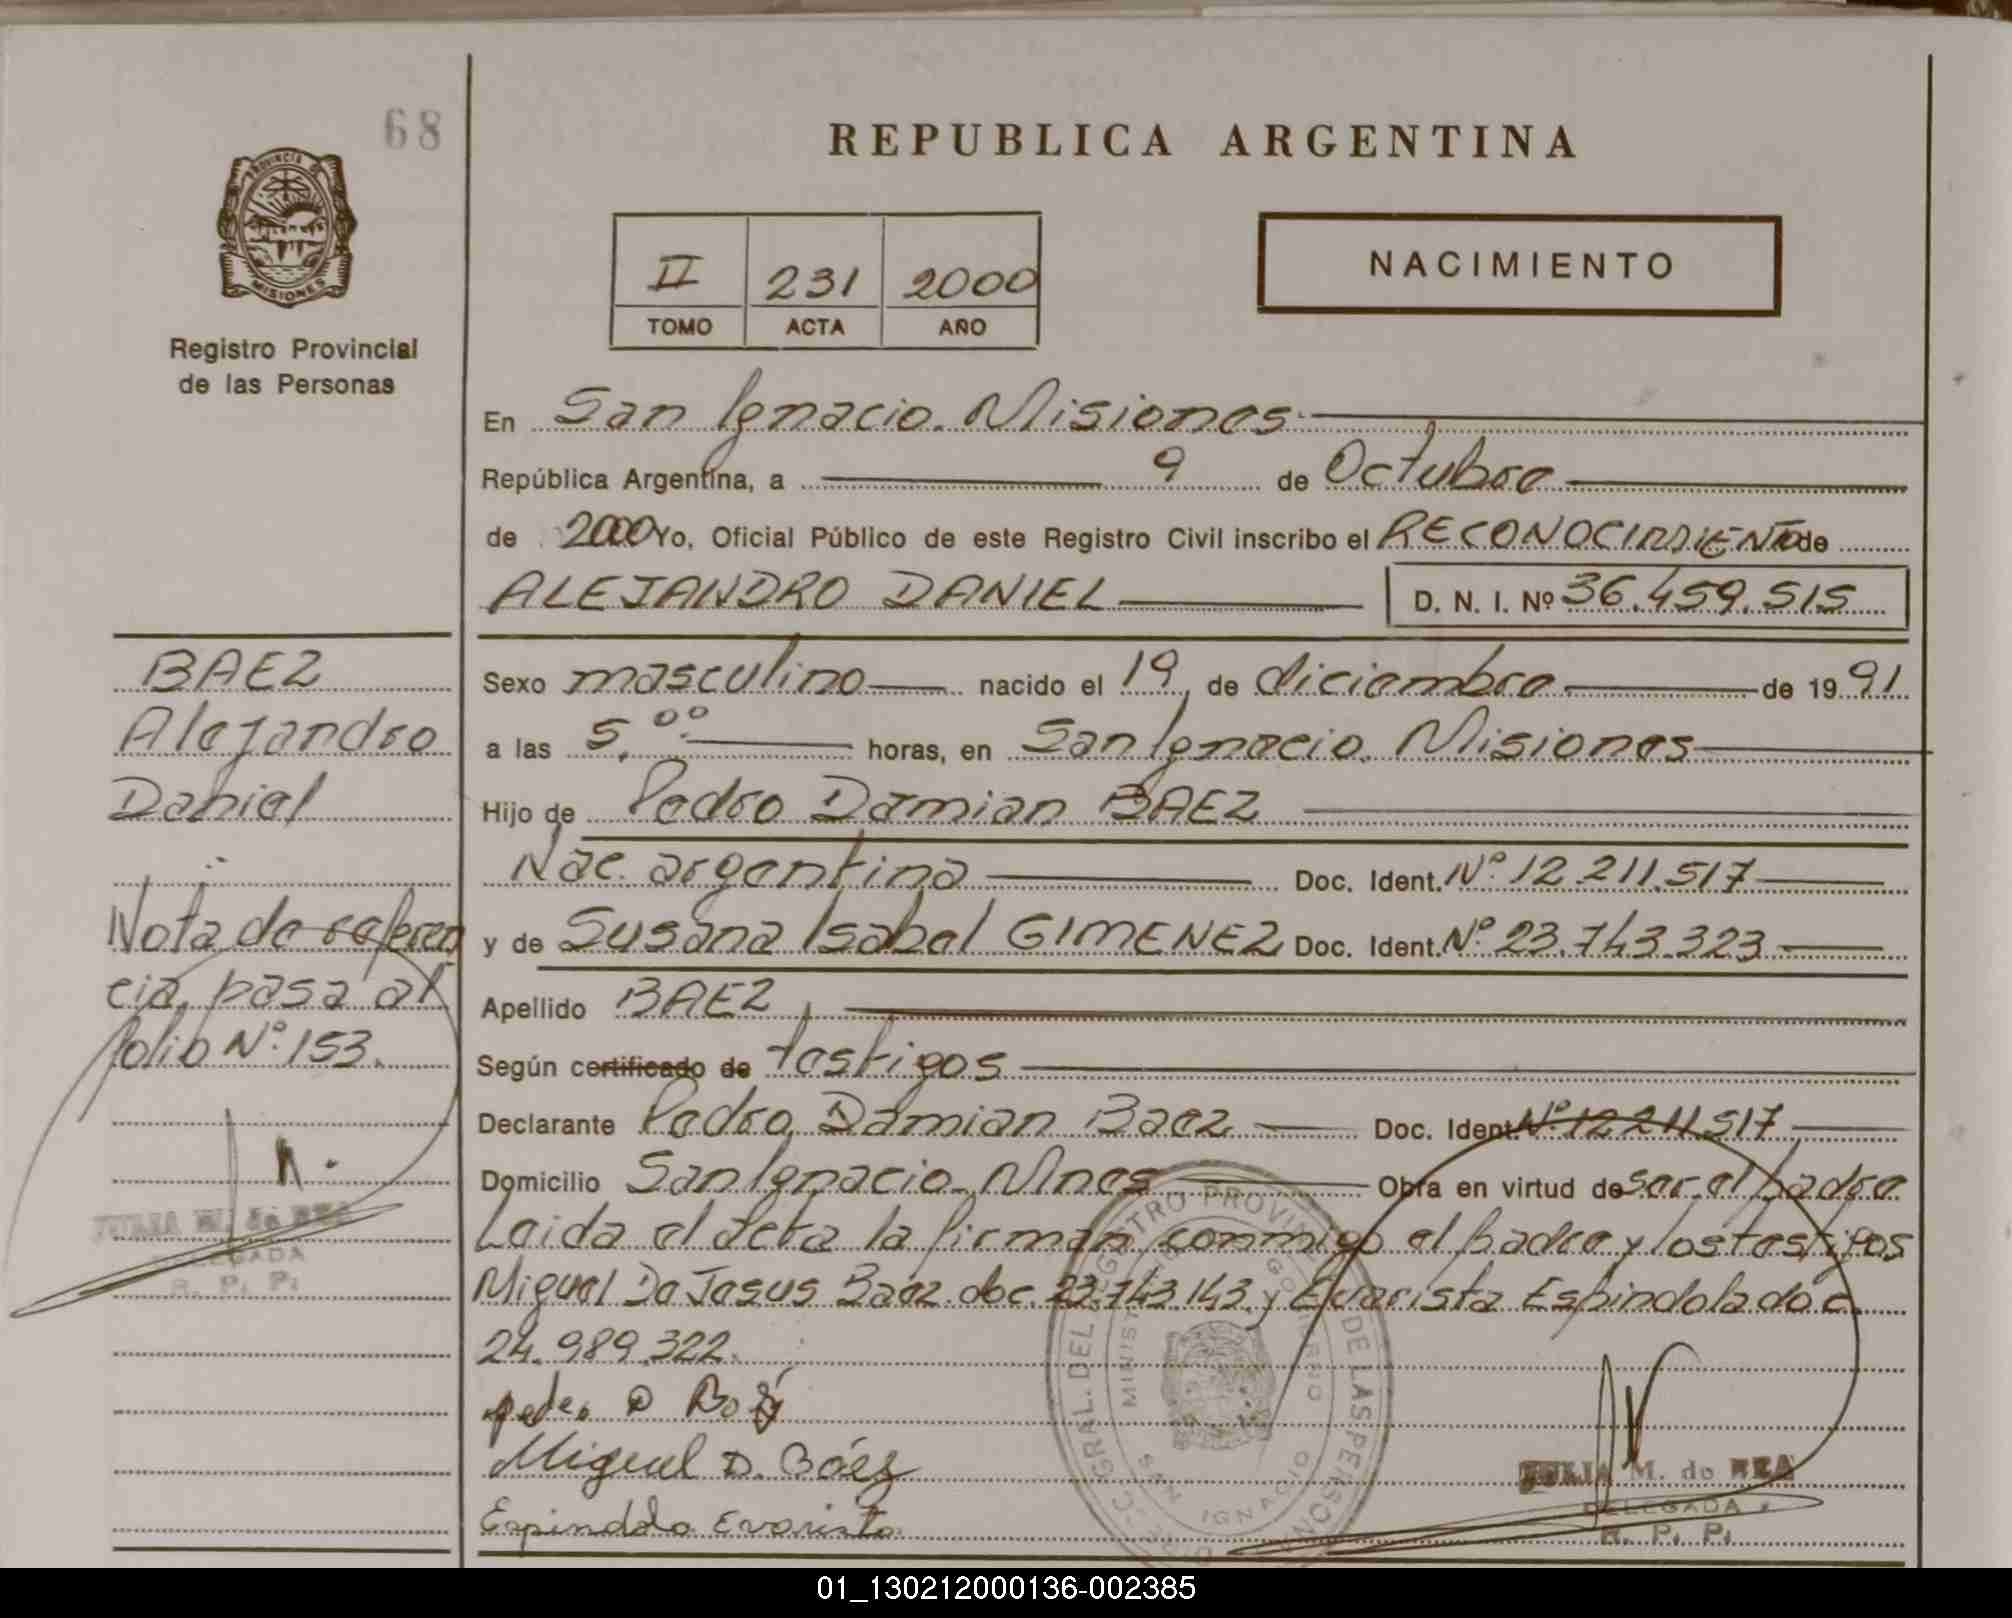 68
PROVINCIA DE
MISIONES
Registro Provincial
de las Personas
REPUBLICA ARGENTINA
II 231 2000
TOMO ACTA AÑO
NACIMIENTO
En San Ignacio. Misiones
República Argentina, a 9 de Octubre
de 2000 Yo, Oficial Público de este Registro Civil inscribo el RECONOCIMIENTO de
ALEJANDRO DANIEL D. N. I. Nº 36.459.515
Sexo masculino nacido el 19 de diciembre de 1991
a las 5.00 horas, en San Ignacio. Misiones
Hijo de Pedro Damian BAEZ
Nac. argentina Doc. Ident. Nº 12.211.517
y de Susana Isabel GIMENEZ Doc. Ident. Nº 23.743.323
Apellido BAEZ
Según certificado de testigos
Declarante Pedro Damian Baez Doc. Ident. Nº 12.211.517
Domicilio San Ignacio Mnes Obra en virtud de ser el padre
Leida el acta la firman conmigo el padre y los testigos
Miguel De Jesus Baez doc. 23.743.143 y Evarista Espindola doc.
24.989.322.
Miguel D. Báez
Espindola Evarista
BAEZ
Alejandro
Daniel
Nota de referen
cia, pasa al
folio Nº 153.
JULIA M. de REA
DELEGADA
R. P. P.
JULIA M. de REA
DELEGADA
R. P. P.
GRAL. DEL REGISTRO PROVIN DE LAS PERSONAS
SAN IGNACIO
01_130212000136-002385